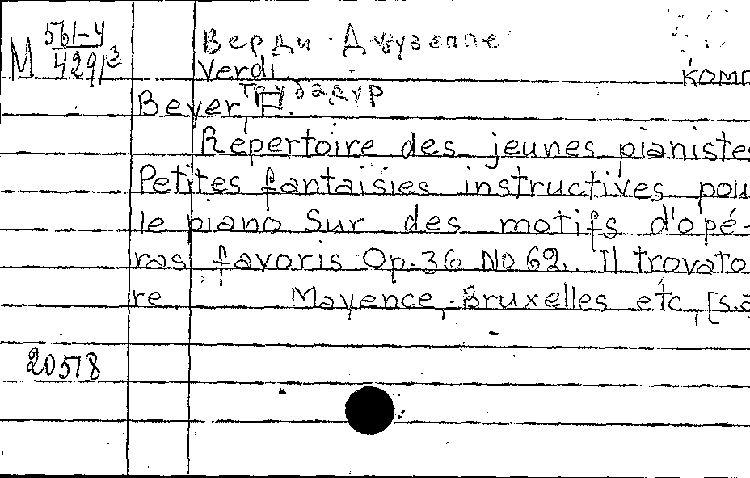 М 561-4
429/3
Верди Джузеппе
Verdi
комп
Трубадур
Beyer F.
Répertoire des jeunes pianiste
Petites fantaisies instructives pou
le piano Sur des motifs d'opé-
ras favoris Op.36 No 62. Il trovato
re Mayence, Bruxelles etc, [s.a
20578